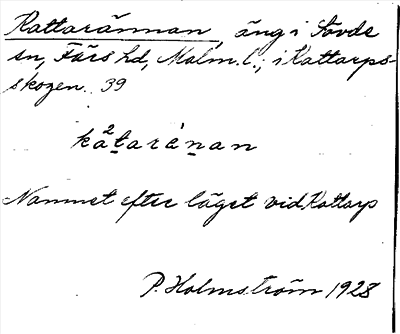 Kattarännan, äng i Sövde
sn, Färs hd, Malm. l.; i Kattarps-
skogen. 39
kat̲aràn̲an
Namnet efter läget vid Kattarp
P. Holmström 1928